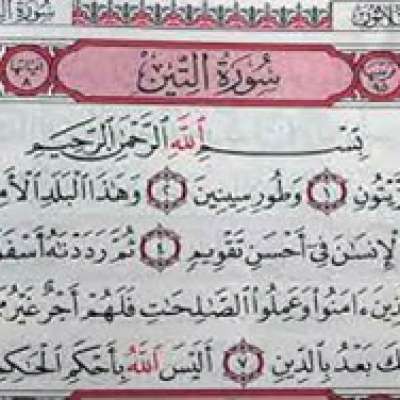 ـلَاثُونَ سُورَةُ
سُورَةُ التِّينِ
بِسْمِ اللَّهِ الرَّحْمَٰنِ الرَّحِيمِ
ـزَّيْتُونِ ١ وَطُورِ سِينِينَ ٢ وَهَٰذَا ٱلْبَلَدِ ٱلْأَمِـ
ٱلْإِنسَٰنَ فِىٓ أَحْسَنِ تَقْوِيمٍ ٤ ثُمَّ رَدَدْنَٰهُ أَسْفَـ
ـذِينَ ءَامَنُوا۟ وَعَمِلُوا۟ ٱلصَّٰلِحَٰتِ فَلَهُمْ أَجْرٌ غَيْرُ مَـ
ـكَ بَعْدُ بِٱلدِّينِ ٧ أَلَيْسَ ٱللَّهُ بِأَحْكَمِ ٱلْحَٰكِمِـ